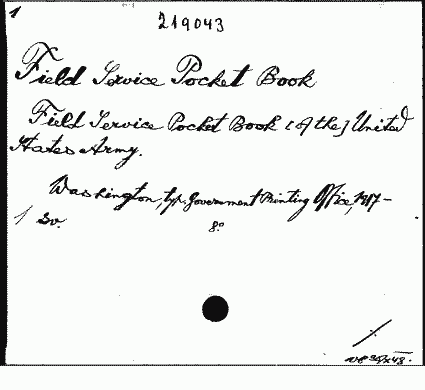 1
219043
Field Service Pocket Book
Field Service Pocket Book [of the] United
States Army.
Washington, typ. Government Printing Office, 1917-
8º